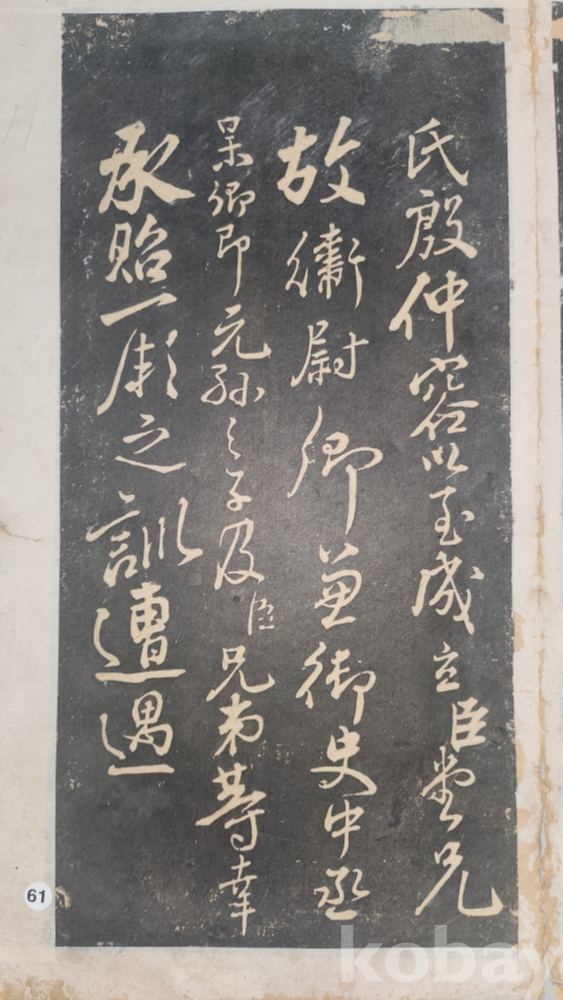 氏殷仲容以至成立臣堂兄
故衛尉卿兼御史中丞
杲卿即元孫之子及臣兄弟等幸
承貽厥之訓遭遇
61
kobay